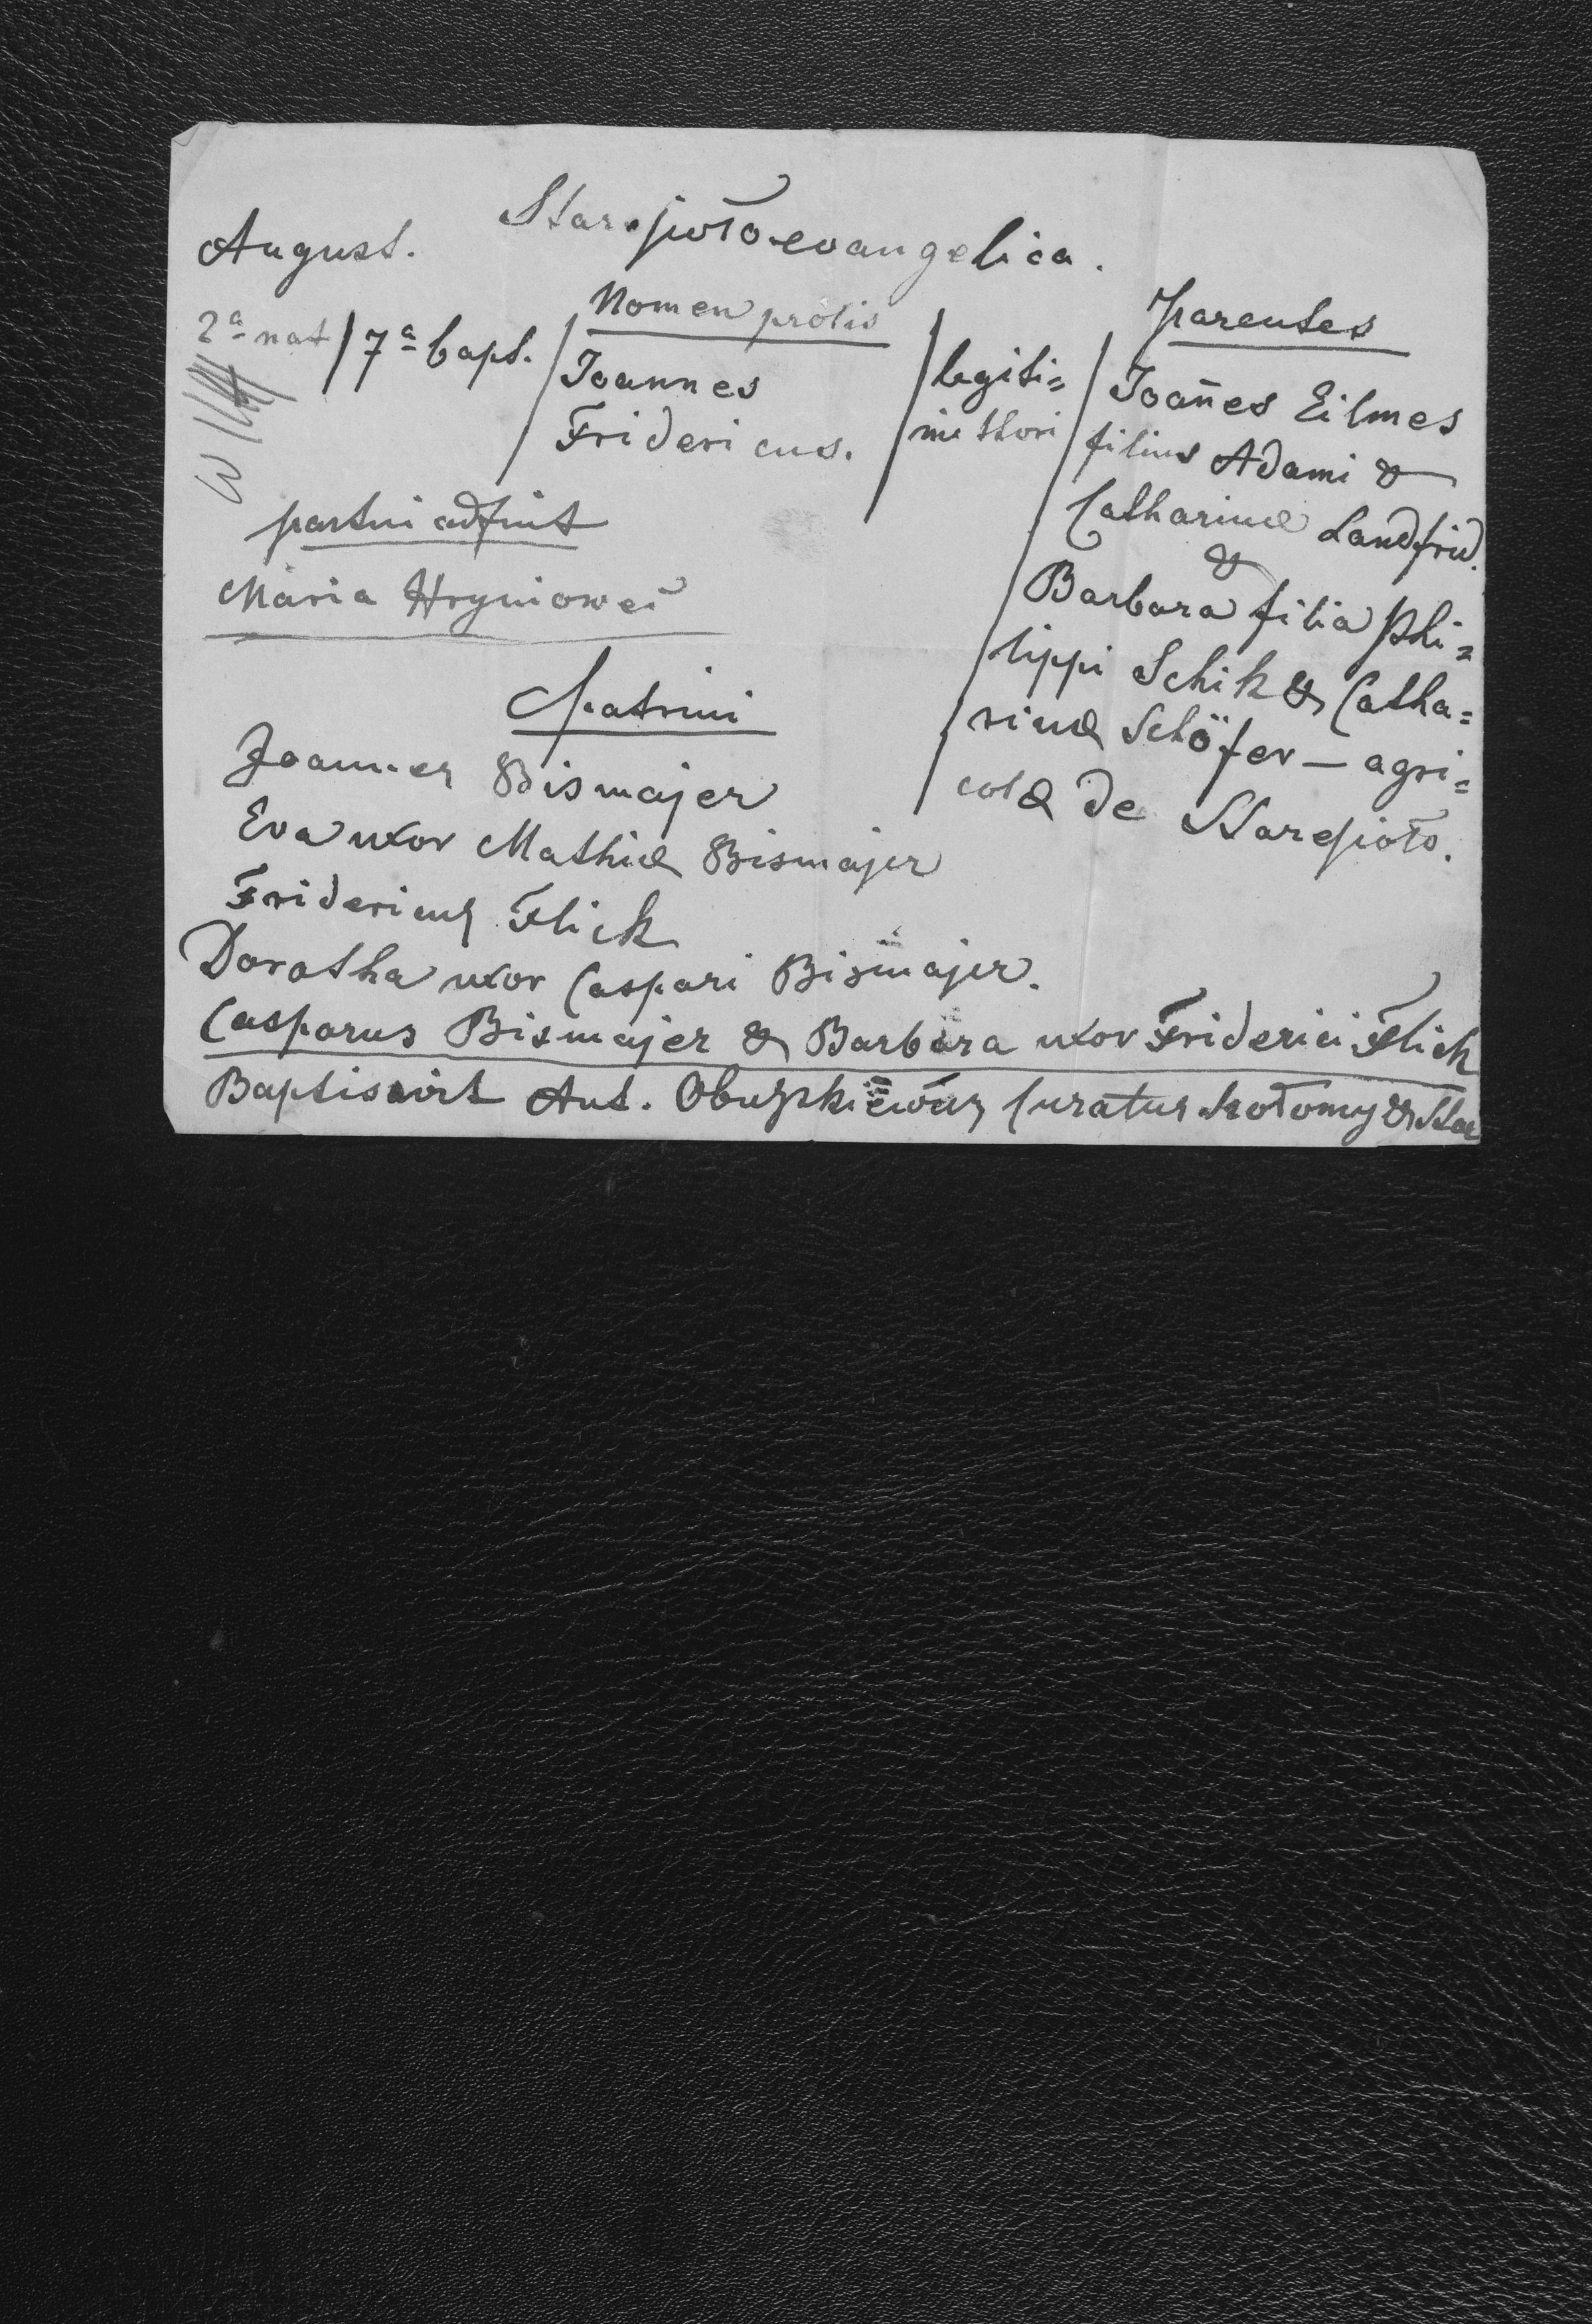 August. Staresioło evangelica.
2ª nat / 7ª bapt. / Nomen prolis / legiti= / Parentes
Joannes
Fridericus.
mi thori
Joañes Eilmes
filius Adami &
Catharinæ Landfrid.
&
Barbara filia Phi=
lippi Schik & Catha=
rinæ Schöfer — agri=
colæ de Staresioło.
partui adfuit
Maria Hryniowei
Patrini
Joannes Bismajer
Eva uxor Mathiæ Bismajer
Fridericus Flick
Dorotha uxor Caspari Bismajer.
Casparus Bismajer & Barbara uxor Friderici Flick
Baptisavit Ant. Curatus Szołomy & Star